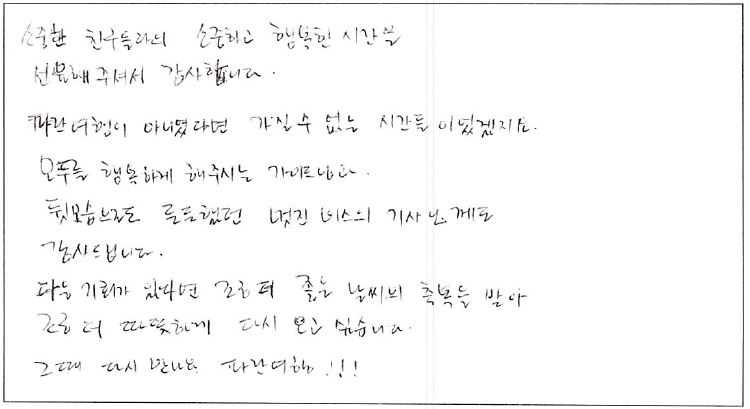 소중한 친구들과의 소중하고 행복한 시간을
선물해주셔서 감사합니다.
파란여행이 아니였다면 가질 수 없는 시간들이였겠지요.
모두를 행복하게 해주시는 가이드님과.
뒷모습으로도 든든했던 멋진 버스의 기사님께도
감사드립니다.
다음 기회가 있다면 조금 더 좋은 날씨의 축복을 받아
조금 더 따뜻하게 다시 오고 싶습니다.
그때 다시 만나요 파란여행!!!